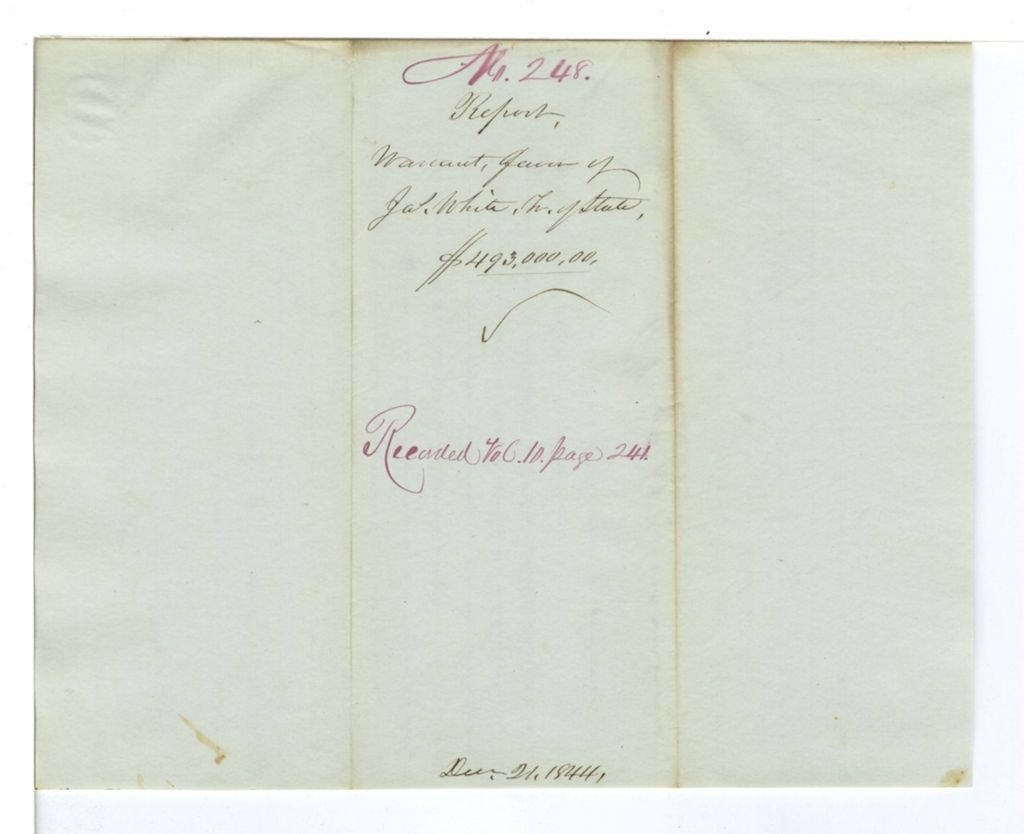 No. 248.
Report,
Warrant, favor of
Jas. White, Tr. of State,
$493,000.00.
Recorded Vol. 10. page 241.
Dec. 21, 1844,